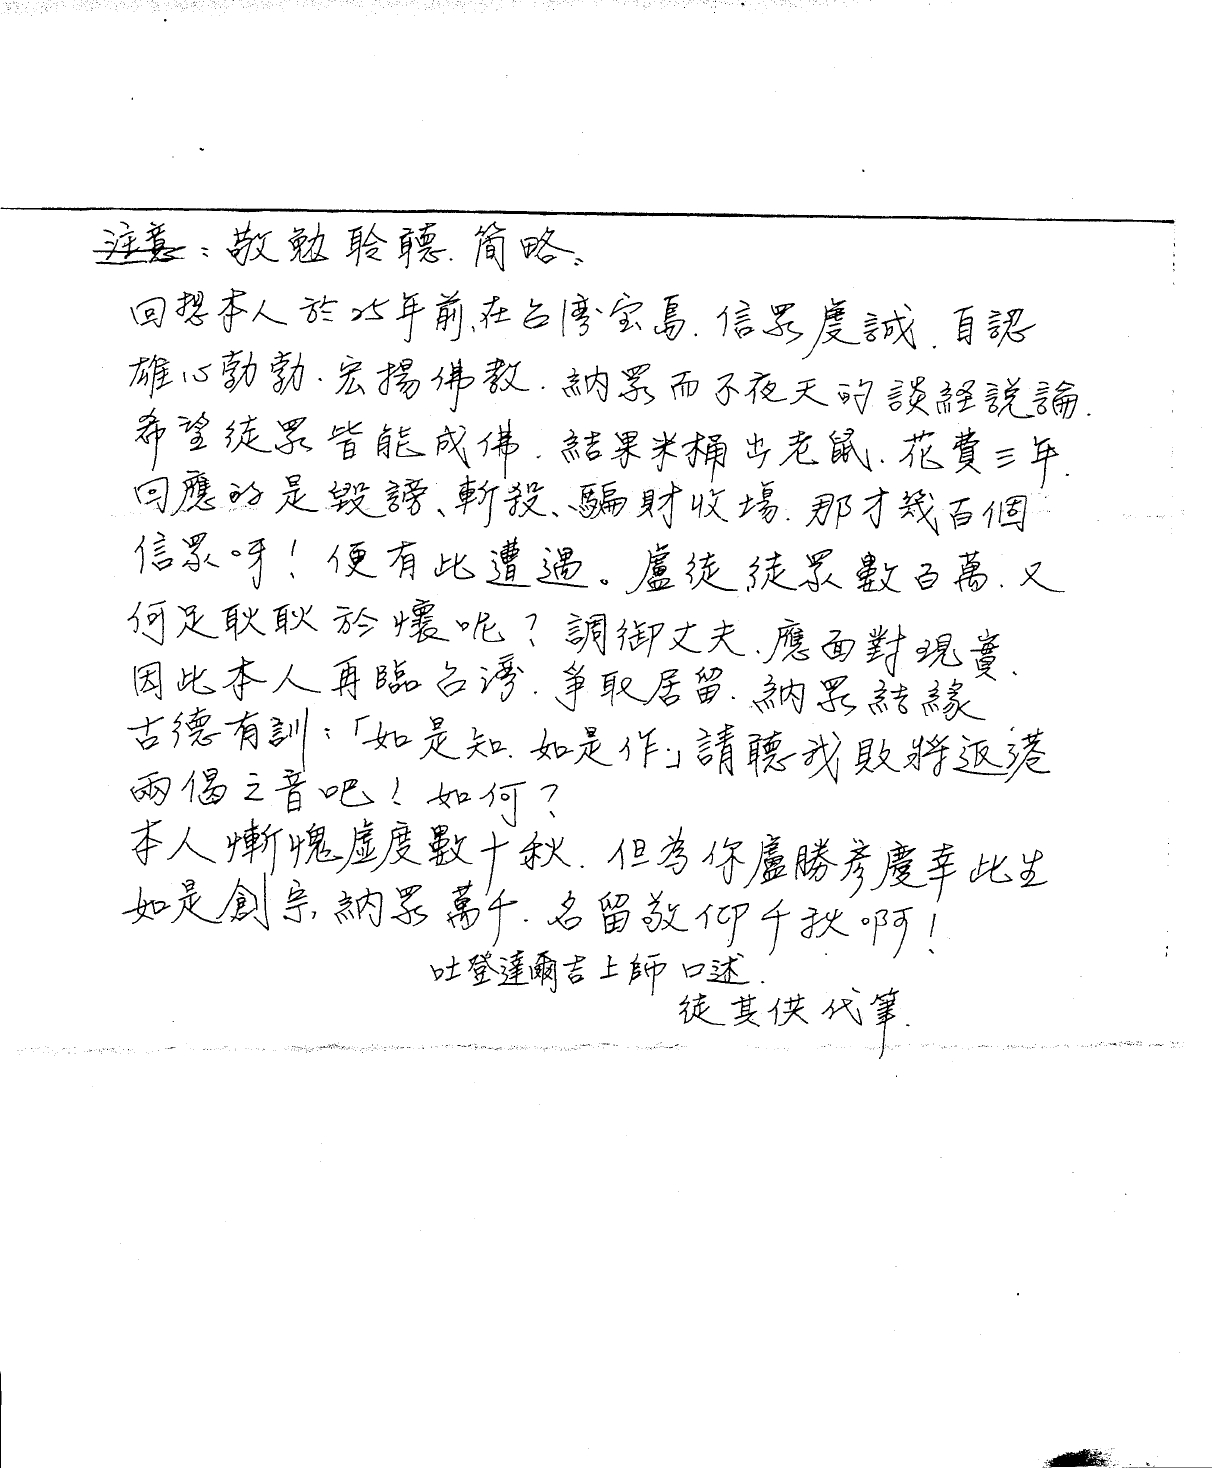 注意：敬勉聆聽．簡略：
回想本人於25年前，在台灣宝島．信眾虔誠．自認
雄心勃勃．宏揚佛教．納眾而不夜天的談経說論．
希望徒眾皆能成佛．結果米桶出老鼠．花費三年．
回應的是毀謗、斬殺、騙財收場．那才幾百個
信眾呀！便有此遭遇。盧徒，徒眾數百萬．又
何足耿耿於懷呢？調御丈夫．應面對現實．
因此本人再臨台湾．爭取居留．納眾結緣
古德有訓：「如是知．如是作」請聽我敗將返港
兩偈之音吧！如何？
本人慚愧虛度數十秋．但為你盧勝彥慶幸此生
如是創宗，納眾萬千．名留敬仰千秋啊！
吐登達爾吉上師口述．
徒其供代筆．